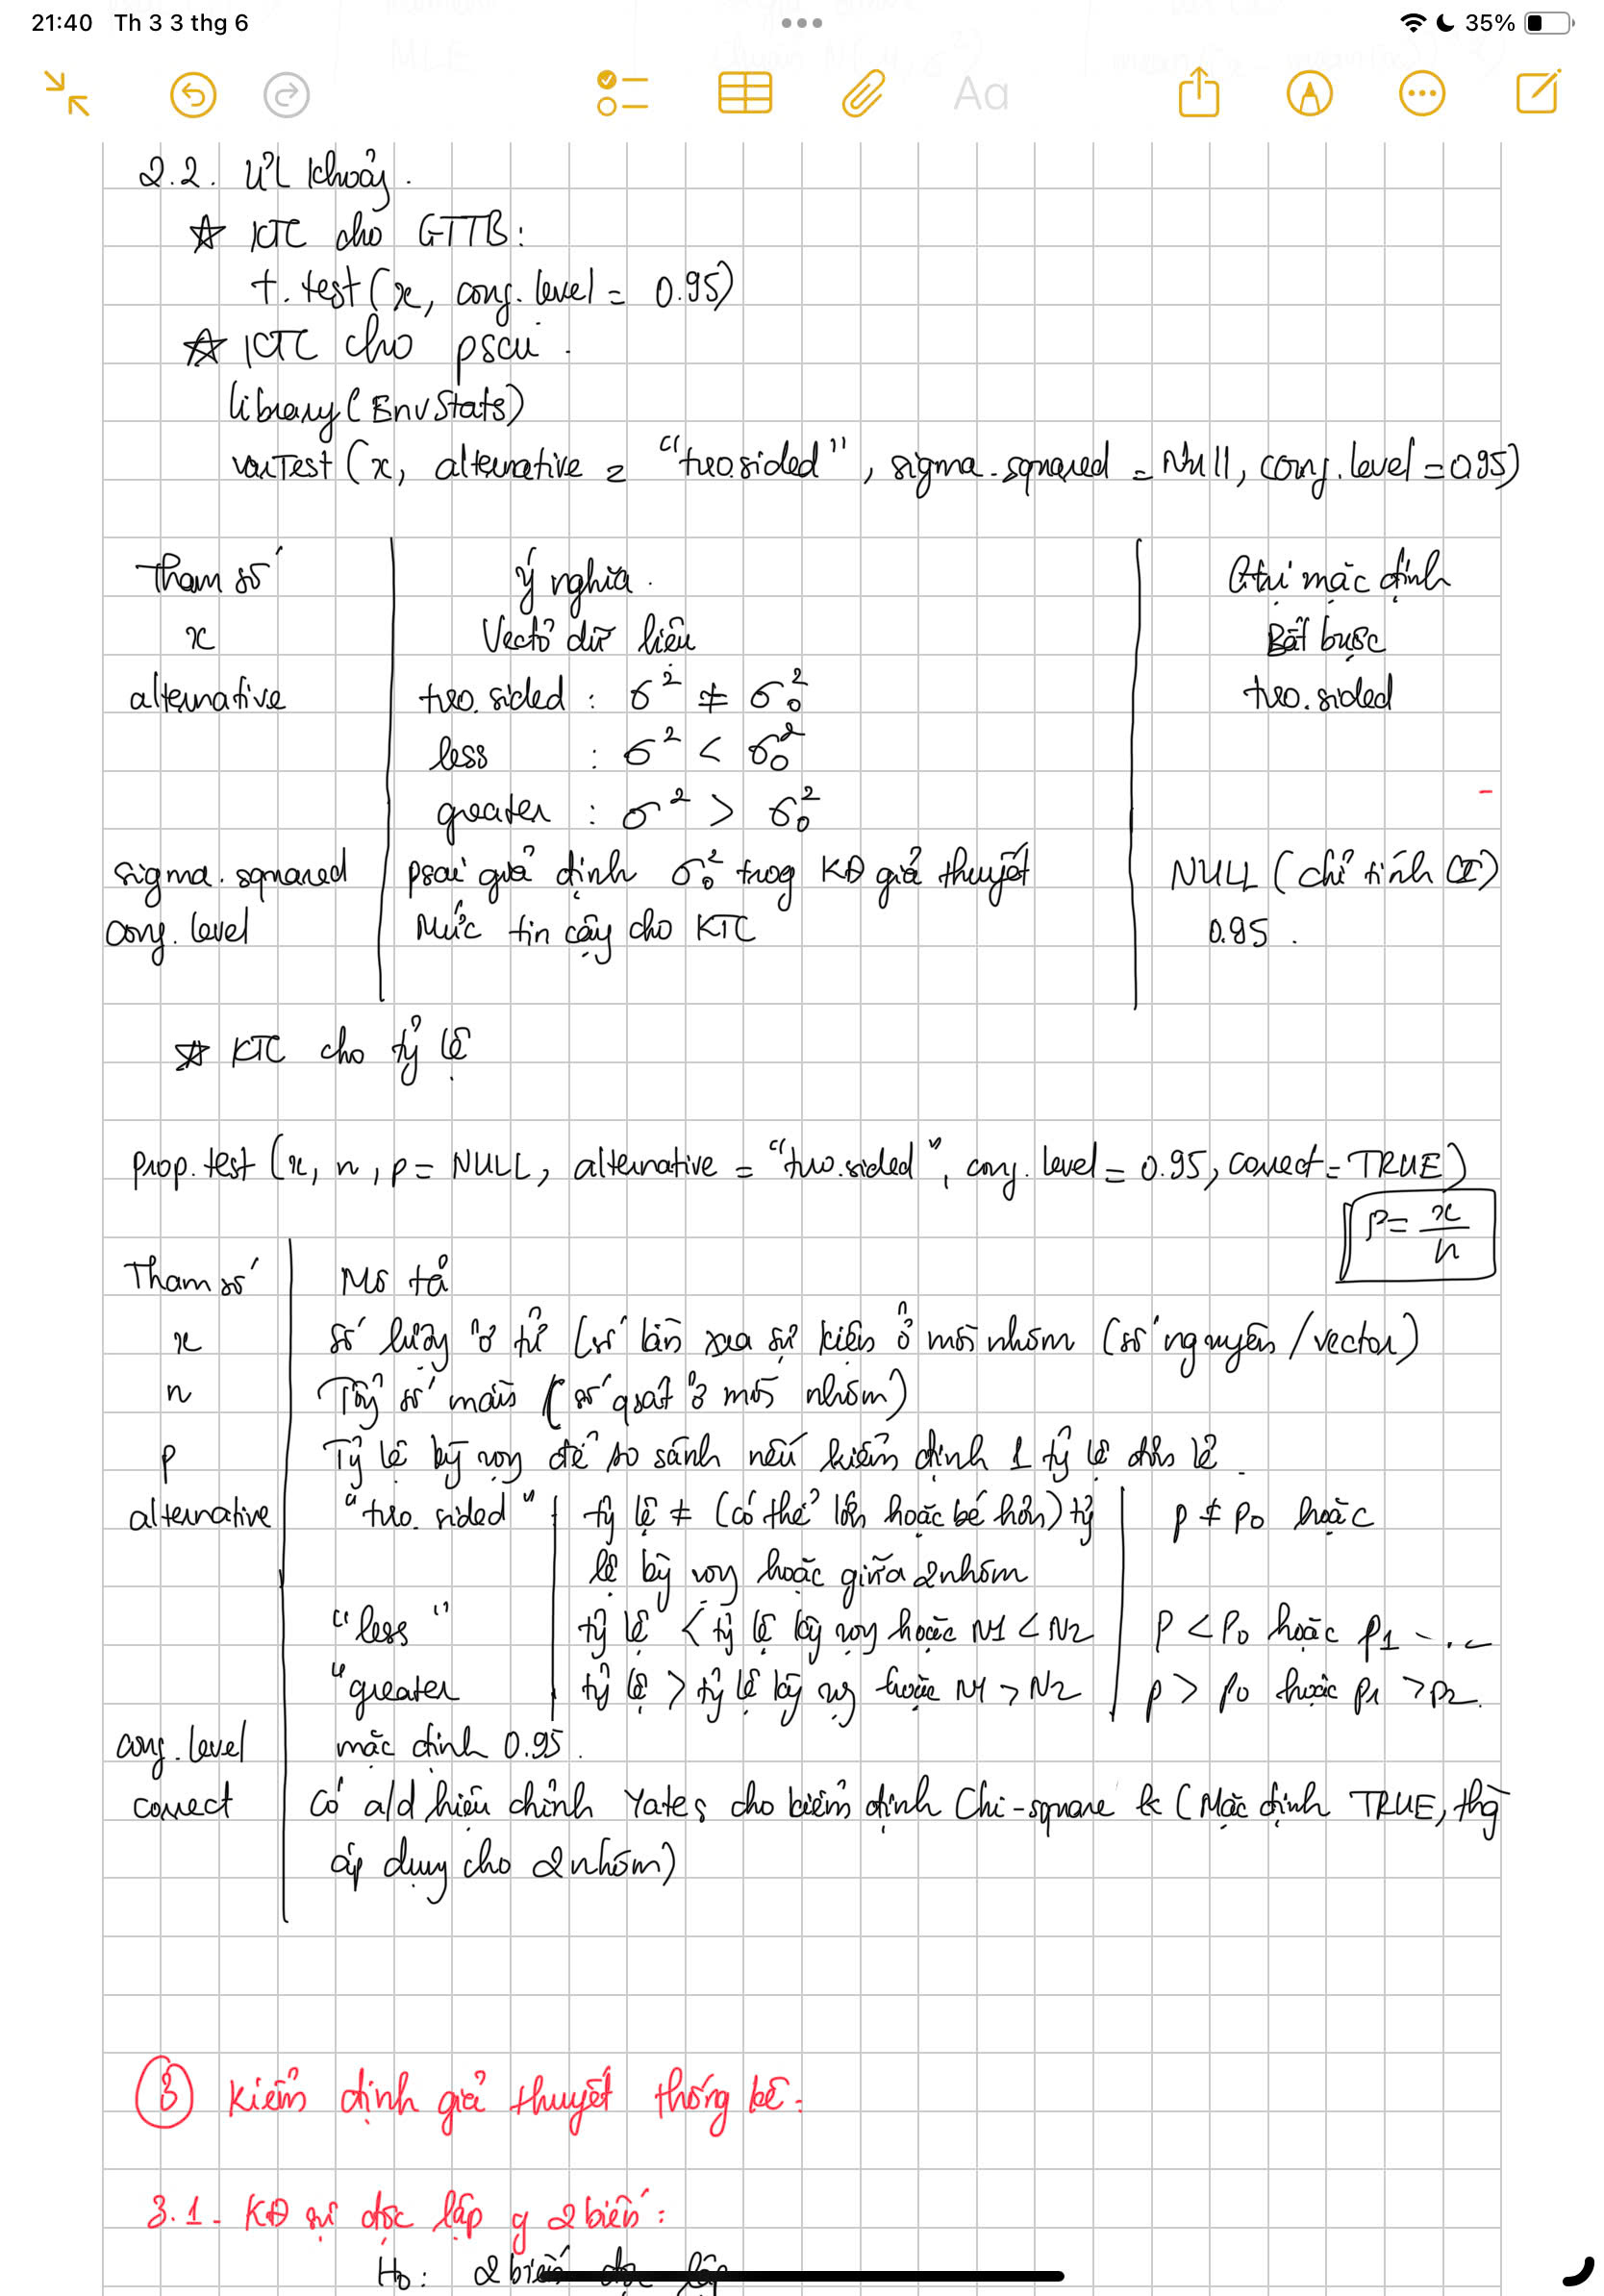 21:40 Th 3 3 thg 6
35%
Aa
2.2. Ư'L khoảg.
☆ KTC cho GTTB:
t.test(x, conf.level = 0.95)
☆ KTC cho psai.
library(EnvStats)
varTest(x, alternative = "two.sided", sigma.squared = Null, conf.level = 0.95)
Tham số | Ý nghĩa. | Gtrị mặc định
x | Vectơ dữ liệu | Bắt buộc
alternative | two.sided : σ² ≠ σ₀² | two.sided
less : σ² < σ₀²
greater : σ² > σ₀²
sigma.squared | psai giả định σ₀² trog KĐ giả thuyết | NULL (chỉ tính CI)
conf.level | Mức tin cậy cho KTC | 0.95.
☆ KTC cho tỷ lệ
prop.test(x, n, p = NULL, alternative = "two.sided", conf.level = 0.95, correct = TRUE)
P = x/n
Tham số | Mô tả
x | Số lượg ở tử (số lần xra sự kiện ở mỗi nhóm (số nguyên/vector)
n | Tổg số mẫu (số qsát ở mỗi nhóm)
p | Tỷ lệ kỳ vọg để so sánh nếu kiểm định 1 tỷ lệ đơn lẻ.
alternative | "two.sided" | tỷ lệ ≠ (có thể lớn hoặc bé hơn) tỷ | p ≠ p₀ hoặc
lệ kỳ vọg hoặc giữa 2 nhóm
"less" | tỷ lệ < tỷ lệ kỳ vọg hoặc N1 < N2 | p < p₀ hoặc p₁ - . .
"greater | tỷ lệ > tỷ lệ kỳ vg hoặc N1 > N2 | p > p₀ hoặc p₁ > p₂.
conf.level | mặc định 0.95.
correct | Có a/d hiệu chỉnh Yates cho kiểm định Chi-square k (Mặc định TRUE, thg
áp dụg cho 2 nhóm)
③ Kiểm định giả thuyết thống kê:
3.1- KĐ sự độc lập g 2 biến:
H₀: 2 biến độc lập